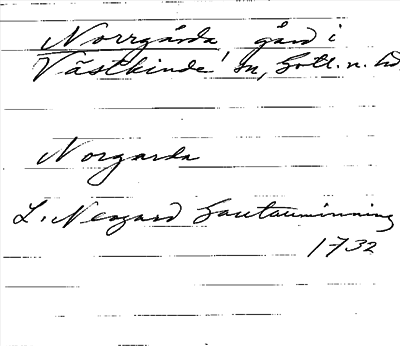 Norrgårda, gård i
Västkinde sn, Gotl. n. hd
Norgarda
L. Neogard Gautauminning
1732